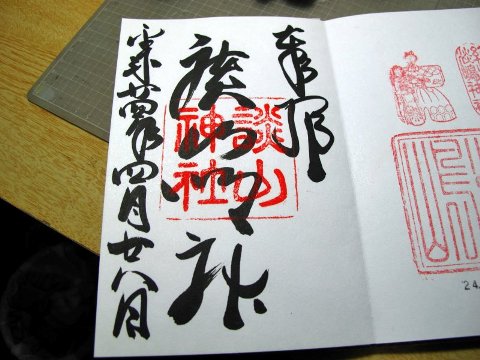 奉拝
談山神社
談山
神社
平成廿四年四月廿八日
'24.